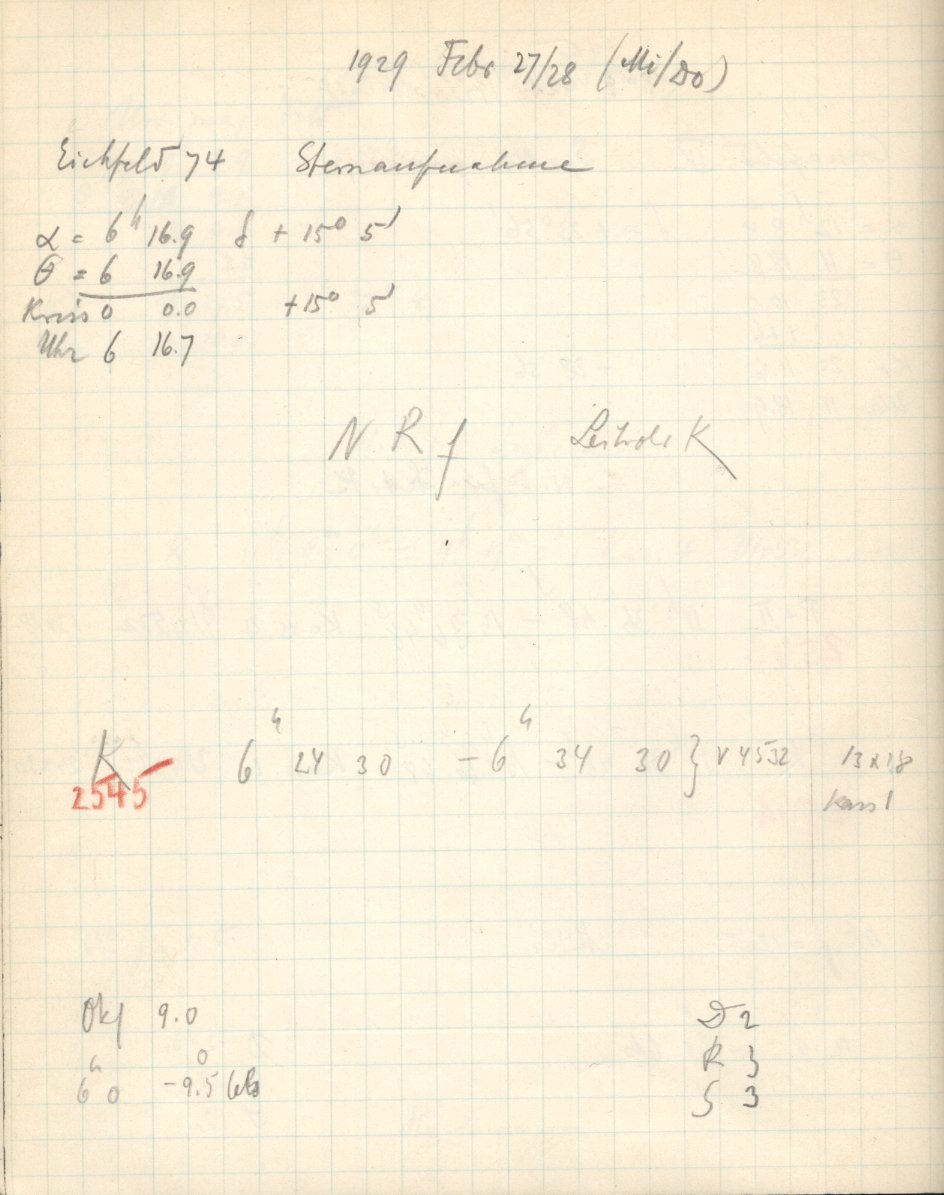 1929 Febr 27/28 (Mi/Do)
Eichfeld 74 Sternaufnahme
α = 6h 16.9 δ + 15° 5'
θ = 6 16.9
Kreis 0 0.0 +15° 5'
Uhr 6 16.7
N R f Leitrohr K
K 6h 24 30 – 6h 34 30 } V 4532 13x18
2545 Kass 1
Okf 9.0 D 2
R 3
6h 0 -9.5°
S 3